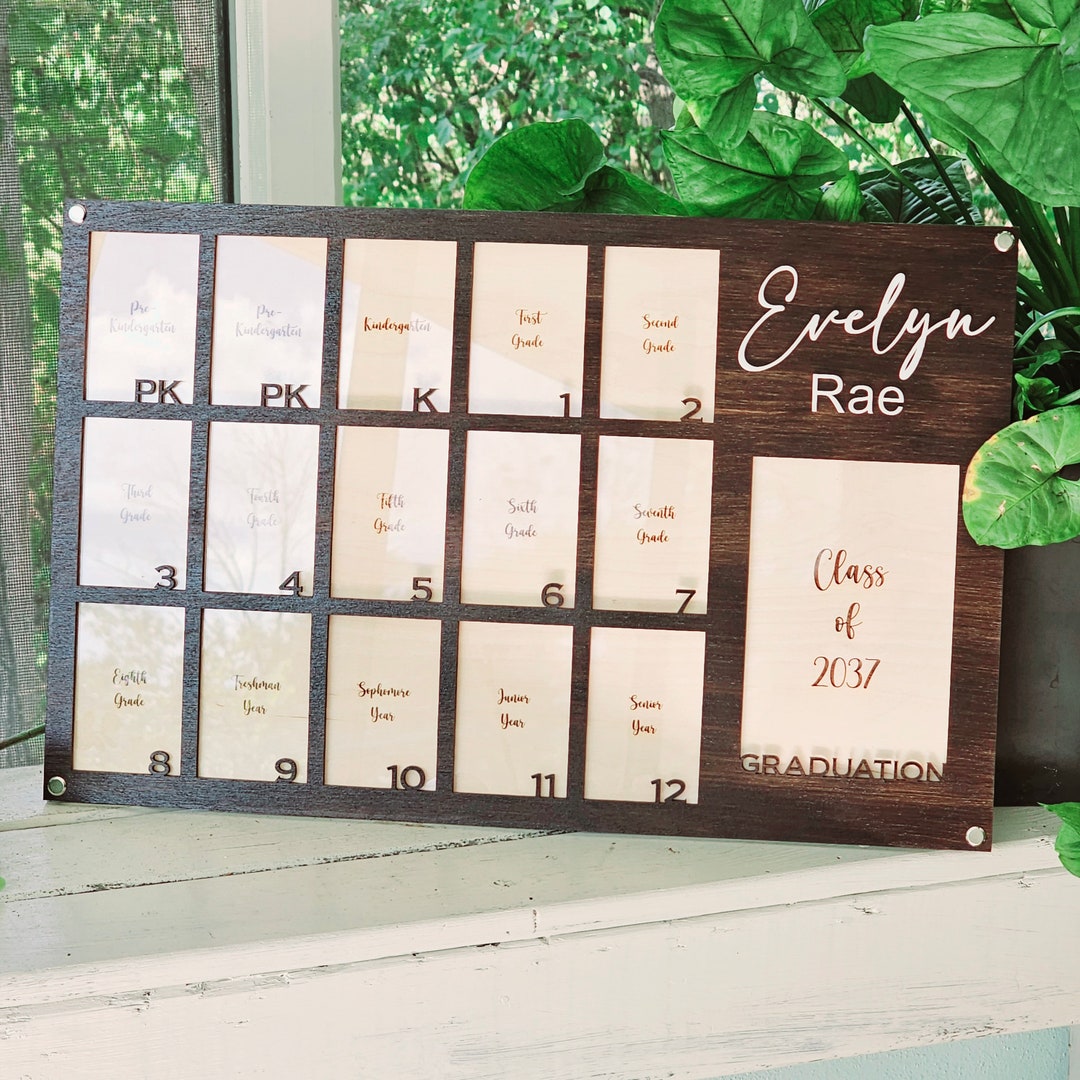 Evelyn
Rae
Pre-
Kindergarten
PK
Pre-
Kindergarten
PK
Kindergarten
K
First
Grade
1
Second
Grade
2
Third
Grade
3
Fourth
Grade
4
Fifth
Grade
5
Sixth
Grade
6
Seventh
Grade
7
Eighth
Grade
8
Freshman
Year
9
Sophomore
Year
10
Junior
Year
11
Senior
Year
12
Class
of
2037
GRADUATION